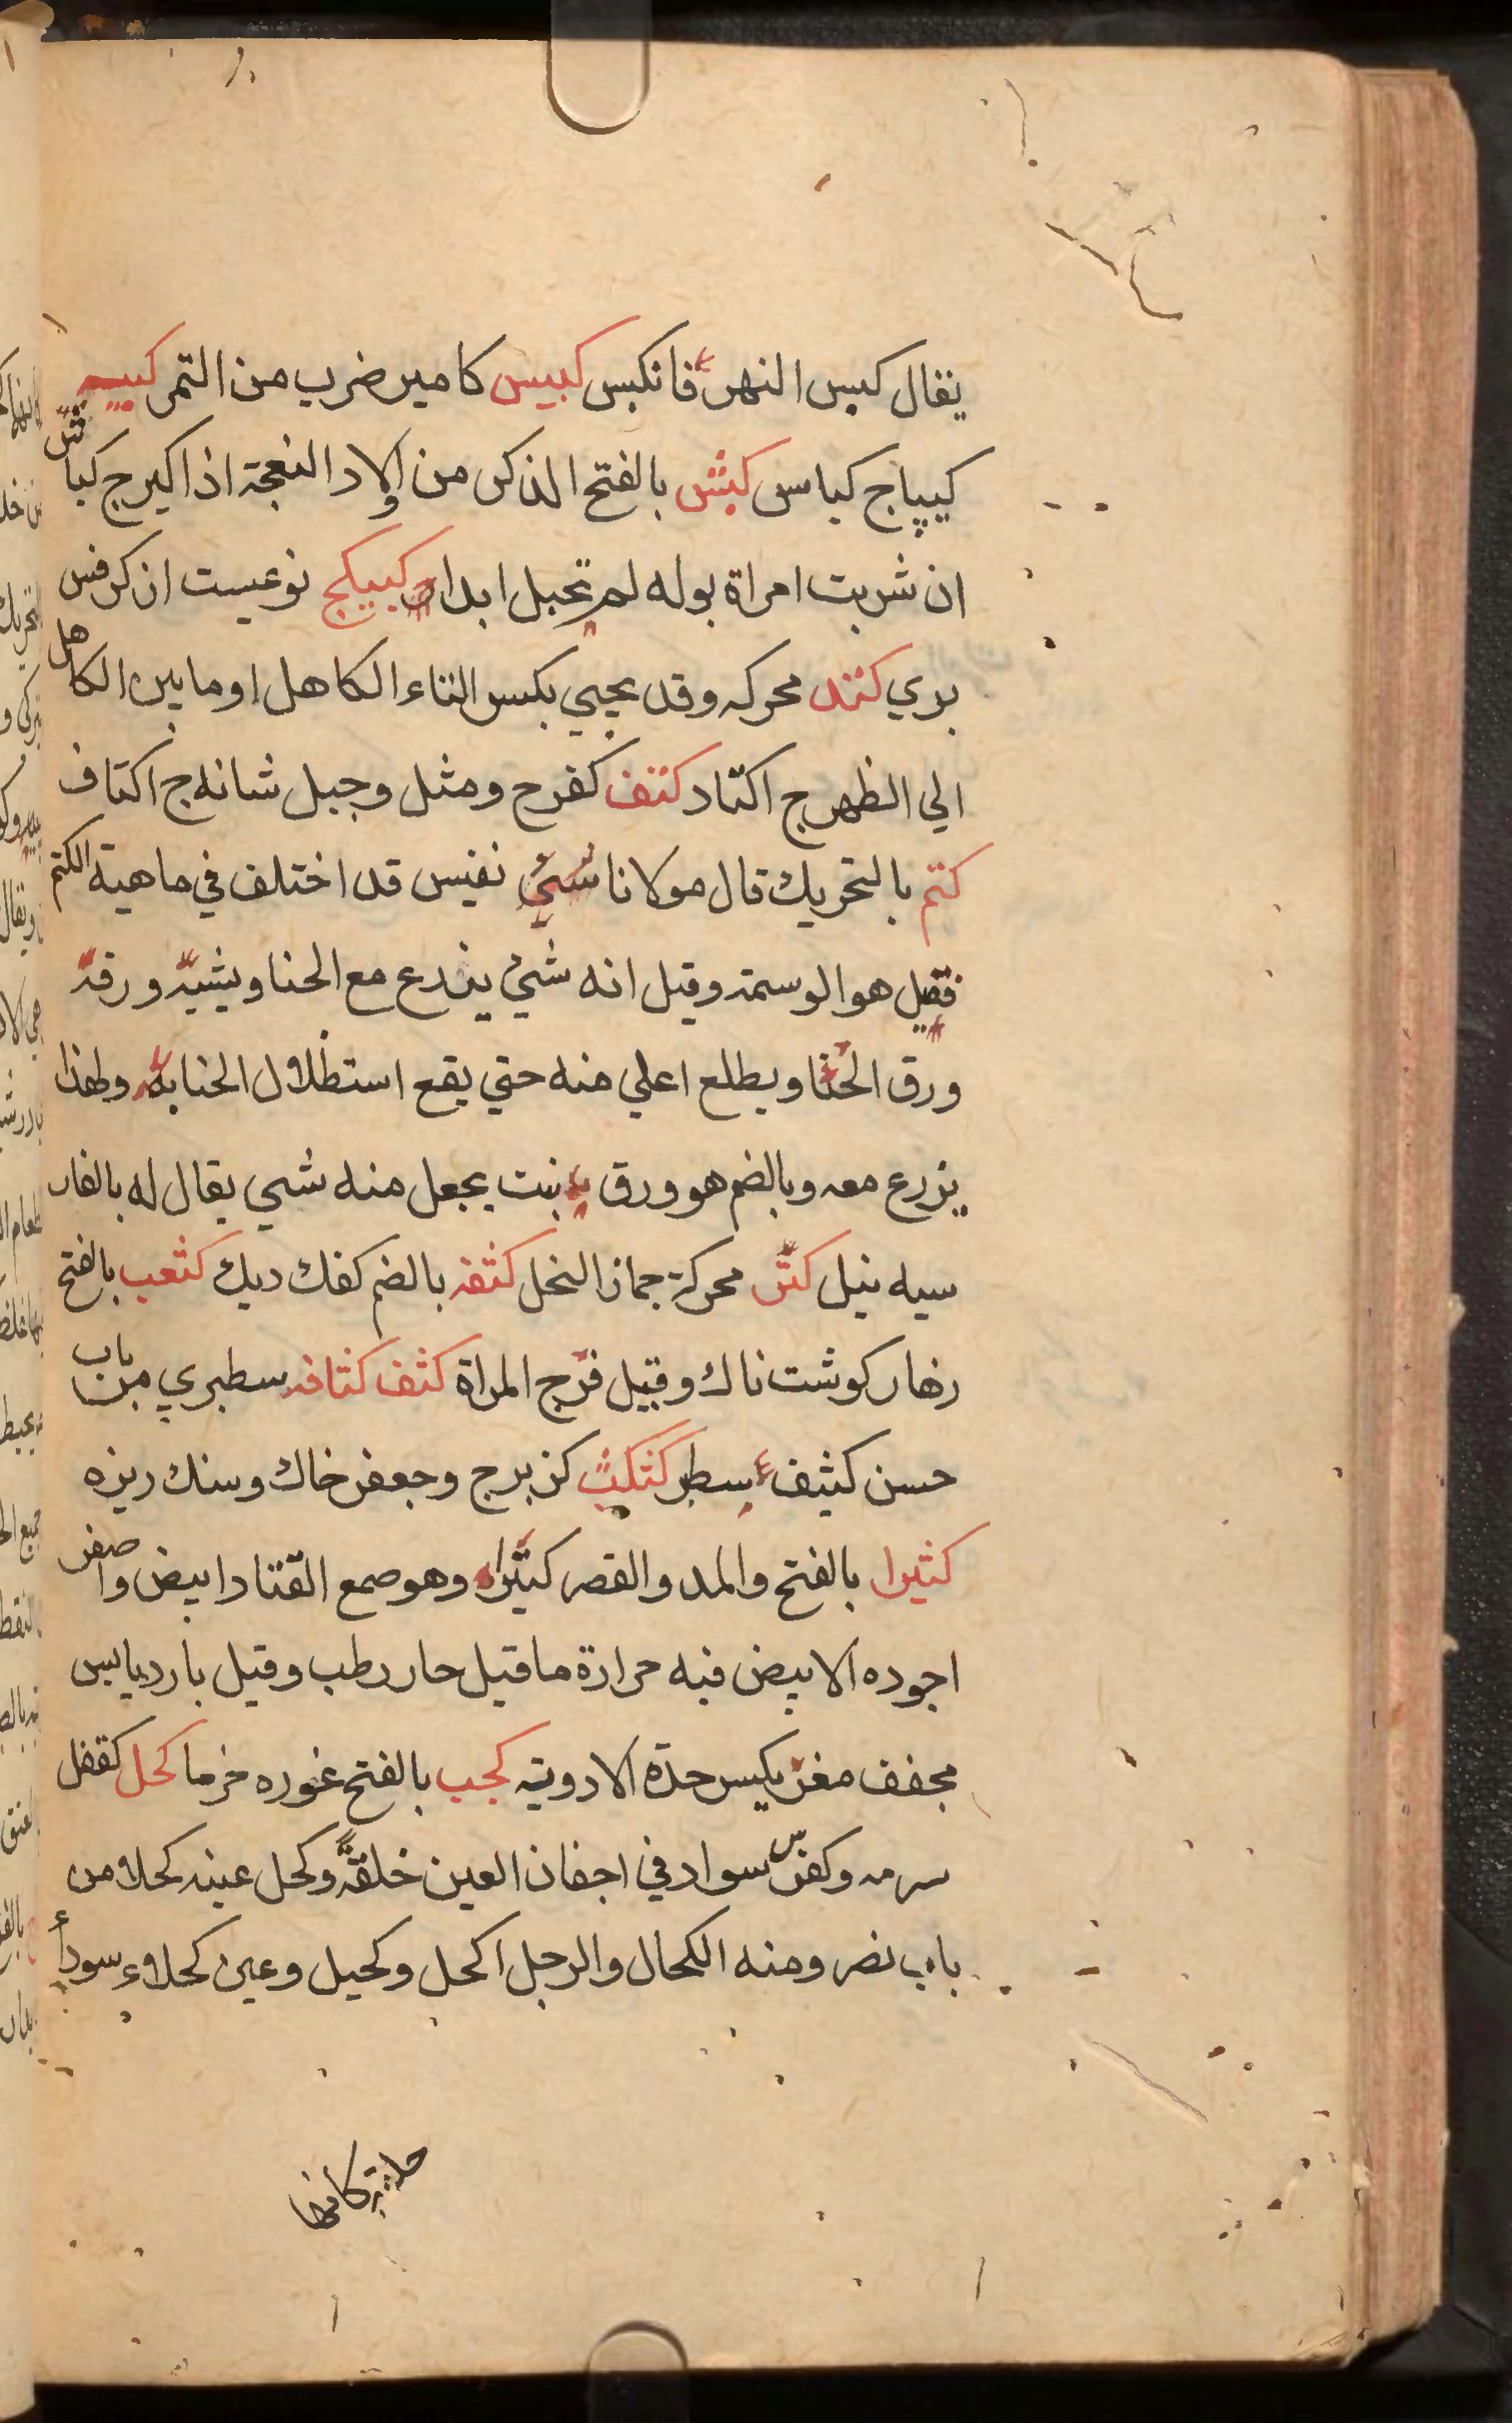 يقال كبس النهر فانكبس كبيس كامير ضرب من التمر كبيبه
كيپاج كباس كبش بالفتح الذكر من اولاد النعجة اذا كبر ج كباش
ان شربت امراة بوله لم تحبل ابدا كبيكج نوعيست از كرفس
بري كتد محركه وقد يجيي بكسر التاء الكاهل او ما بين الكاهل
الي الظهر ج اكتاد كتف كفرح ومثل وجبل شانه ج اكتاف
كتم بالتحريك قال مولانا نفيس قد اختلف في ماهية الكتم
فقيل هو الوسمة وقيل انه شيء يزرع مع الحنا ويشبه ورقه
ورق الحنا ويطلع اعلي منه حتي يقع استظلال الحنا به ولهذا
يزرع معه وبالضم هو ورق نبت يجعل منه شيي يقال له بالفار
سيه نيل كثر محركة جماز النخل كثفه بالضم كفك ديك كثعب بالفتح
زهار كوشت ناك وقيل فرج المراة كثف كثافه سطبري من باب
حسن كثيف سطبر كثكث كزبرج وجعفر خاك وسنك ريزه
كثيرا بالفتح والمد والقصر كتيراه وهو صمع القتاد ابيض واصفر
اجوده الابيض فيه حرارة ما قيل حار رطب وقيل بارد يابس
مجفف مغر يكسر حدة الادوية كجب بالفتح غوره خرما كحل كقفل
سرمه وكفرس سواد في اجفان العين خلقة وكحل عينه كحلا من
باب نصر ومنه الكحال والرجل اكحل وكحيل وعين كحلاء سوداء